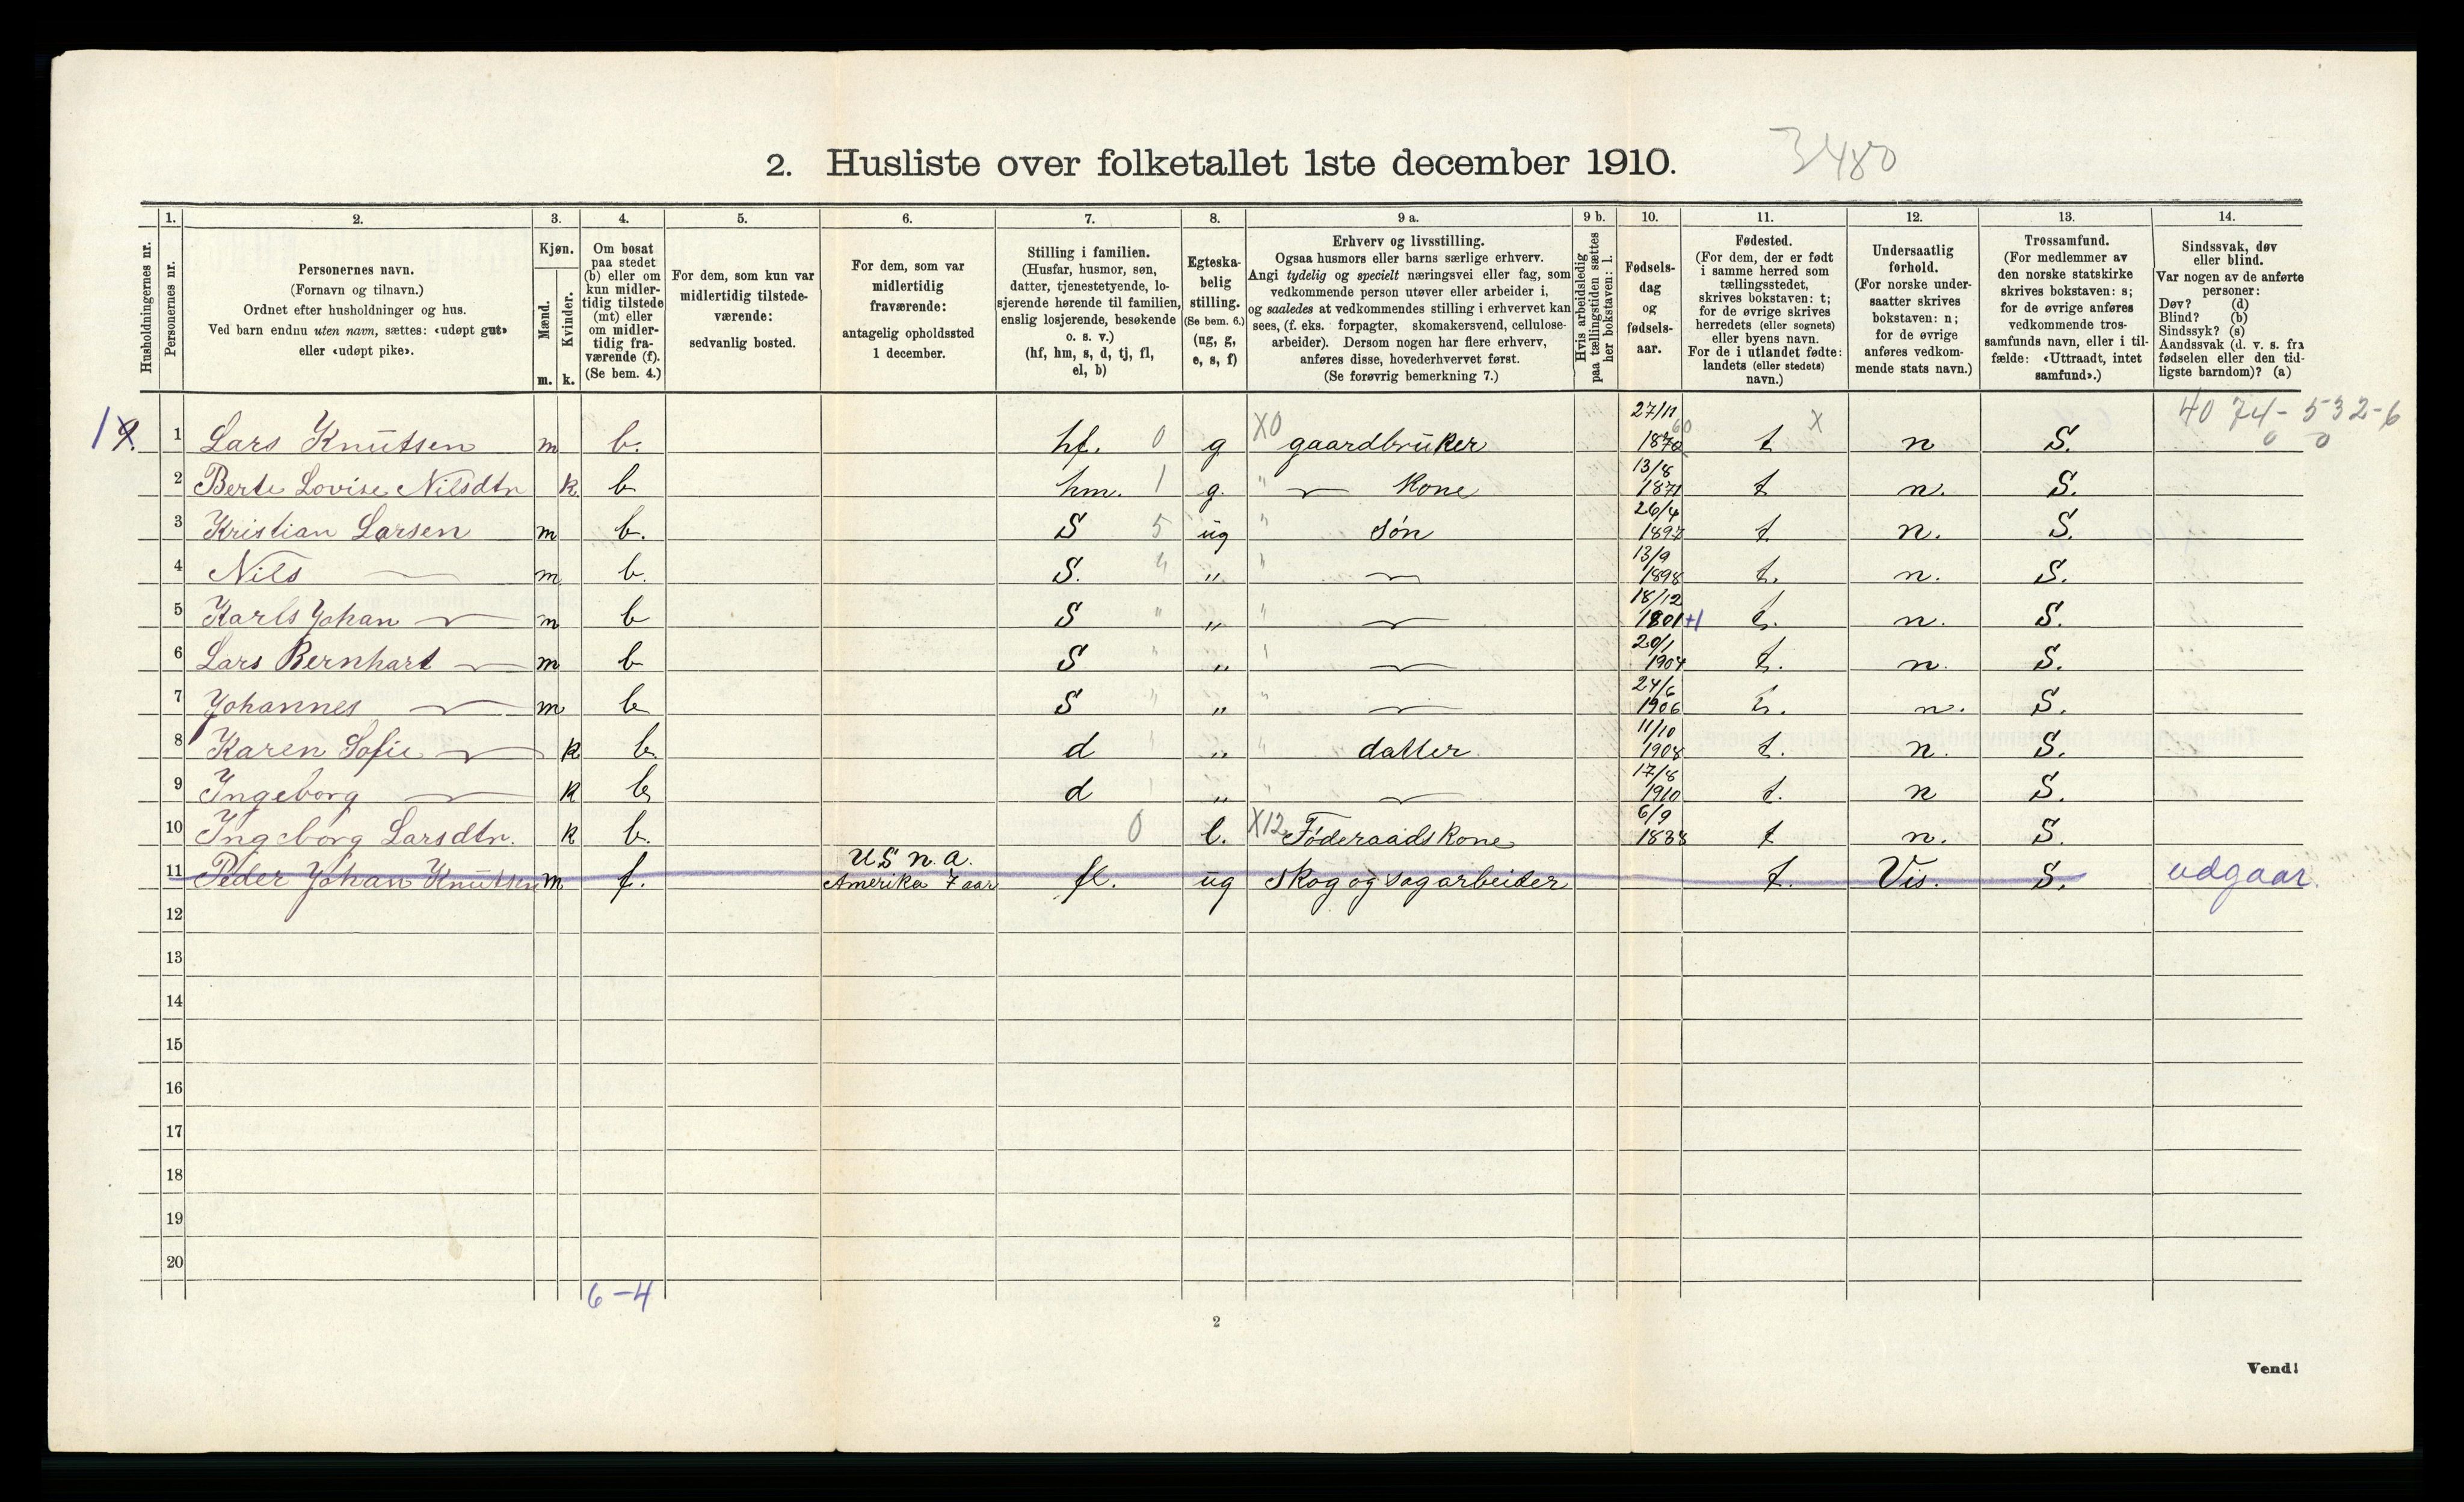 2. Husliste over folketallet 1ste december 1910. 3480
1. 2. 3. 4. 5. 6. 7. 8. 9 a. 9 b. 10. 11. 12. 13. 14.
Husholdningernes nr.
Personernes nr.
Personernes navn.
(Fornavn og tilnavn.)
Ordnet efter husholdninger og hus.
Ved barn endnu uten navn, sættes: «udøpt gut»
eller «udøpt pike».
Kjøn.
Mænd.
Kvinder.
m. k.
Om bosat
paa stedet
(b) eller om
kun midler-
tidig tilstede
(mt) eller
om midler-
tidig fra-
værende (f).
(Se bem. 4.)
For dem, som kun var
midlertidig tilstede-
værende:
sedvanlig bosted.
For dem, som var
midlertidig
fraværende:
antagelig opholdssted
1 december.
Stilling i familien.
(Husfar, husmor, søn,
datter, tjenestetyende, lo-
sjerende hørende til familien,
enslig losjerende, besøkende
o. s. v.)
(hf, hm, s, d, tj, fl,
el, b)
Egteska-
belig
stilling.
(Se bem. 6.)
(ug, g,
e, s, f)
Erhverv og livsstilling.
Ogsaa husmors eller barns særlige erhverv.
Angi tydelig og specielt næringsvei eller fag, som
vedkommende person utøver eller arbeider i,
og saaledes at vedkommendes stilling i erhvervet kan
sees, (f. eks. forpagter, skomakersvend, cellulose-
arbeider). Dersom nogen har flere erhverv,
anføres disse, hovederhvervet først.
(Se forøvrig bemerkning 7.)
Hvis arbeidsledig
paa tællingstiden sættes
her bokstaven: l.
Fødsels-
dag
og
fødsels-
aar.
Fødested.
(For dem, der er født
i samme herred som
tællingsstedet,
skrives bokstaven: t;
for de øvrige skrives
herredets (eller sognets)
eller byens navn.
For de i utlandet fødte:
landets (eller stedets)
navn.)
Undersaatlig
forhold.
(For norske under-
saatter skrives
bokstaven: n;
for de øvrige
anføres vedkom-
mende stats navn.)
Trossamfund.
(For medlemmer av
den norske statskirke
skrives bokstaven: s;
for de øvrige anføres
vedkommende tros-
samfunds navn, eller i til-
fælde: «Uttraadt, intet
samfund».)
Sindssvak, døv
eller blind.
Var nogen av de anførte
personer:
Døv? (d)
Blind? (b)
Sindssyk? (s)
Aandssvak (d. v. s. fra
fødselen eller den tid-
ligste barndom)? (a)
40 74 - 532-6
0 0
1 Lars Knutsen m b. hf. 0 g X0 gaardbruker 27/11 1870 60 t X n S.
2 Berte Lovise Nilsdtr k b hm. 1 g. " — Kone 13/8 1871 t n. S.
3 Kristian Larsen m b. S 5 ug " søn 26/4 1897 t n. S.
4 Nils — m b. S. " " " — 13/9 1898 t. n. S.
5 Karls Johan — m b S " " " — 18/12 1801 +1 t. n. S.
6 Lars Bernhart — m b S " " " — 20/1 1904 t. n. S.
7 Johannes — m b S " " " — 24/6 1906 t. n. S.
8 Karen Sofie — k b. d " " " datter 11/10 1908 t. n. S.
9 Ingeborg — k b d " " " — 17/8 1910 t. n S.
10 Ingeborg Larsdtr. k b. 0 X12 Føderaadskone 6/9 1838 t n. S.
11 Peder Johan Knutsen m f. U S n. a. Amerika 7 aar fl. ug skog og sagarbeider t. Vis. S. udgaar.
12
13
14
15
16
17
18
19
20
6-4
2
Vend!